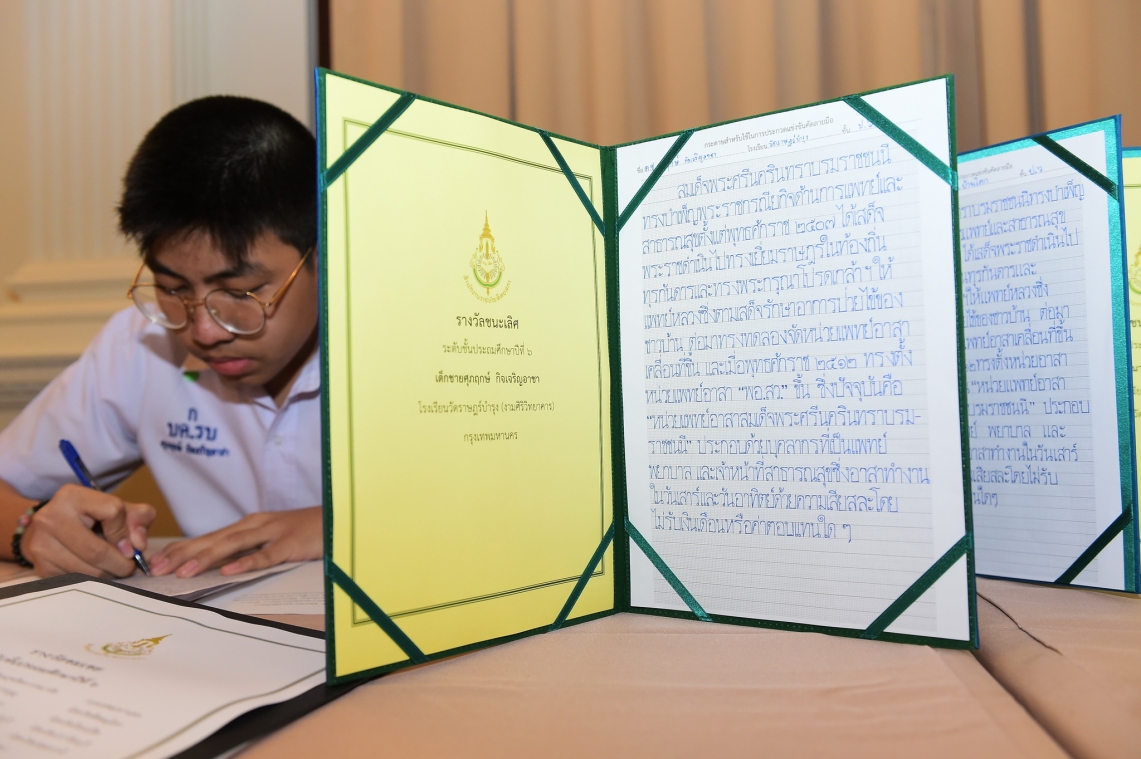 รางวัลชนะเลิศ
ระดับชั้นประถมศึกษาปีที่ ๖
เด็กชายศุภฤกษ์ กิจเจริญอาชา
โรงเรียนวัดราษฎร์บำรุง (งามศิริวิทยาคาร)
กรุงเทพมหานคร
กระดาษสำหรับใช้ในการประกวดแข่งขันคัดลายมือ
ชื่อ โรงเรียน ชั้น
สมเด็จพระศรีนครินทราบรมราชชนนี
ทรงบำเพ็ญพระราชกรณียกิจด้านการแพทย์และ
สาธารณสุขตั้งแต่พุทธศักราช ๒๕๐๗ ได้เสด็จ
พระราชดำเนินไปทรงเยี่ยมราษฎรในท้องถิ่น
ทุรกันดารและทรงพระกรุณาโปรดเกล้าฯ ให้
แพทย์หลวงซึ่งตามเสด็จรักษาอาการป่วยไข้ของ
ชาวบ้าน ต่อมาทรงทดลองจัดหน่วยแพทย์อาสา
เคลื่อนที่ขึ้น และเมื่อพุทธศักราช ๒๕๑๒ ทรงตั้ง
หน่วยแพทย์อาสา "พอ.สว." ขึ้น ซึ่งปัจจุบันคือ
"หน่วยแพทย์อาสาสมเด็จพระศรีนครินทราบรม-
ราชชนนี" ประกอบด้วยบุคลากรที่เป็นแพทย์
พยาบาล และเจ้าหน้าที่สาธารณสุขซึ่งอาสาทำงาน
ในวันเสาร์และวันอาทิตย์ด้วยความเสียสละโดย
ไม่รับเงินเดือนหรือค่าตอบแทนใด ๆ
ราบรมราชชนนีทรงบำเพ็ญ
แพทย์และสาธารณสุข
ได้เสด็จพระราชดำเนินไป
ทุรกันดารและ
ให้แพทย์หลวงซึ่ง
ไข้ของชาวบ้าน ต่อมา
แพทย์อาสาเคลื่อนที่ขึ้น
๒ทรงตั้งหน่วยอาสา
"หน่วยแพทย์อาสา
บรมราชชนนี" ประกอบ
พยาบาล และ
อาสาทำงานในวันเสาร์
เสียสละโดยไม่รับ
ใดๆ
ก
บศ.รบ